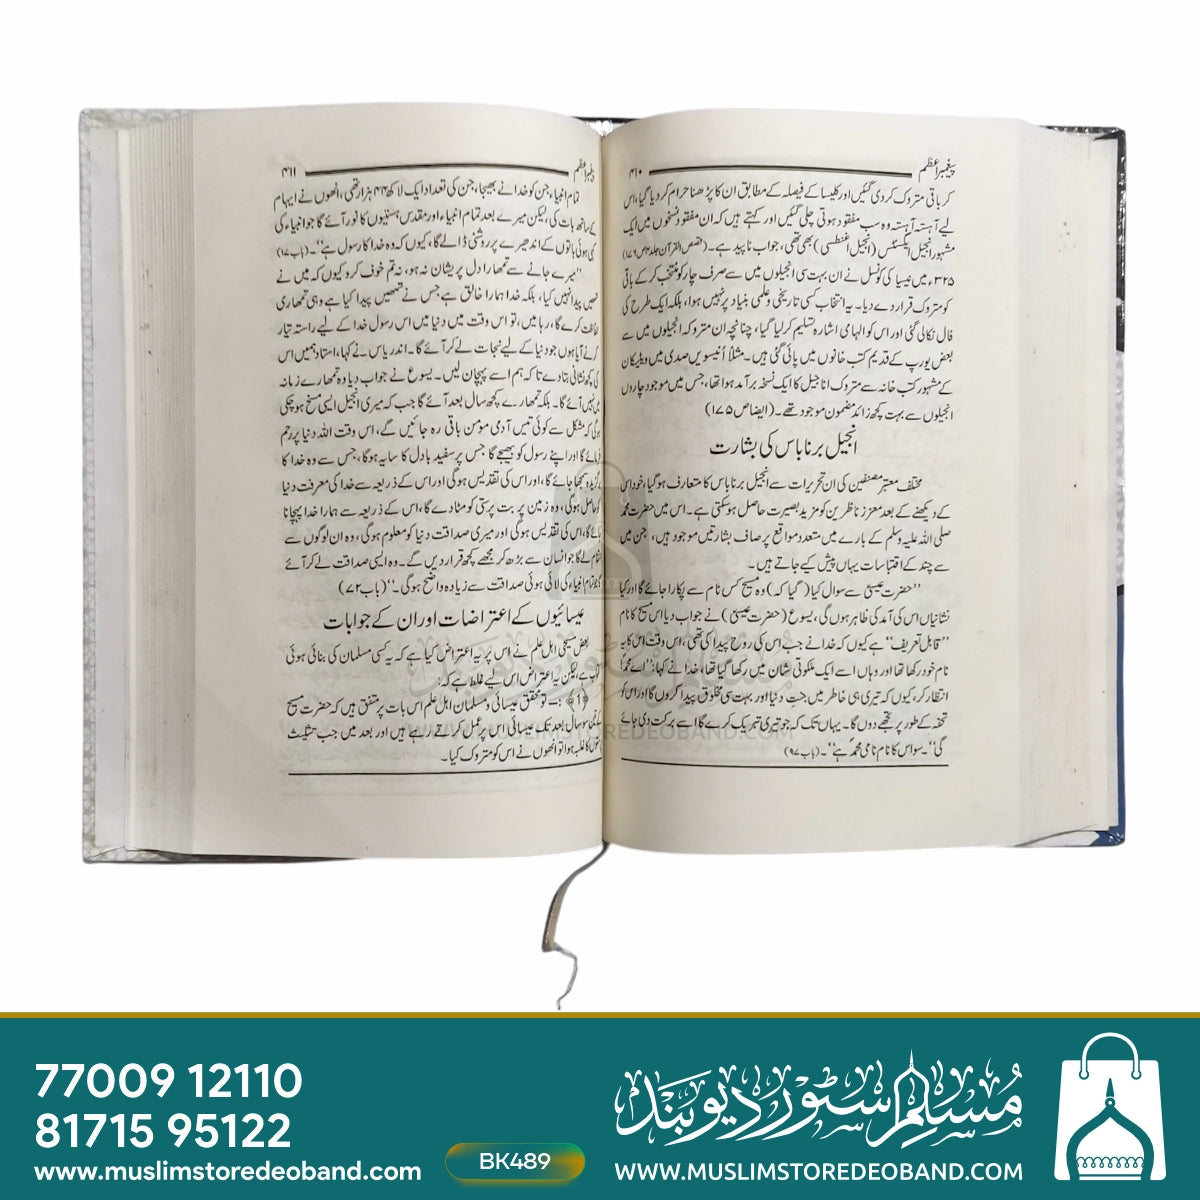 پیغمبر اعظم
۴۱۰
کر باقی متروک کردی گئیں اور کلیسا کے فیصلہ کے مطابق ان کا پڑھنا حرام کردیا گیا، اس
لیے آہستہ آہستہ وہ سب مفقود ہوتی چلی گئیں اور کہتے ہیں کہ ان مفقود نسخوں میں ایک
مشہور انجیل ایگنٹس (انجیل اغنطسی) بھی تھی، جواب ناپید ہے۔ (قصص القرآن جلد ۴ص۱۷۹)
۳۲۵ء میں نیسیا کی کونسل نے ان بہت سی انجیلوں میں سے صرف چار کو منتخب کر کے باقی
کو متروک قرار دے دیا۔ یہ انتخاب کسی تاریخی و علمی بنیاد پر نہیں ہوا، بلکہ ایک طرح کی
فال نکالی گئی اور اس کو الہامی اشارہ تسلیم کرلیا گیا، چنانچہ ان متروکہ انجیلوں میں سے
بعض یورپ کے قدیم کتب خانوں میں پائی گئی ہیں۔ مثلاً اُنیسویں صدی میں ویٹیکان
کے مشہور کتب خانہ سے متروک اناجیل کا ایک نسخہ برآمد ہوا تھا، جس میں موجود چاروں
انجیلوں سے بہت کچھ زائد مضمون موجود تھے۔ (ایضا ص ۱۷۵)
انجیل برناباس کی بشارت
مختلف معتبر مصنفین کی ان تحریرات سے انجیل برناباس کا متعارف ہو گیا، خود اس
کے دیکھنے کے بعد معزز ناظرین کو مزید بصیرت حاصل ہوسکتی ہے۔ اس میں حضرت محمد
صلی اللہ علیہ وسلم کے بارے میں متعدد مواقع پر صاف بشارتیں موجود ہیں، جن میں
سے چند کے اقتباسات یہاں پیش کیے جاتے ہیں۔
’’حضرت عیسیٰ سے سوال کیا (گیا کہ) وہ مسیح کس نام سے پکارا جائے گا اور کیا
نشانیاں اس کی آمد کی ظاہر ہوں گی، یسوع (حضرت عیسیٰ) نے جواب دیا اس مسیح کا نام
’’قابل تعریف‘‘ ہے کیوں کہ خدا نے جب اس کی روح پیدا کی تھی، اس وقت اس کا یہ
نام خود رکھا تھا اور وہاں اسے ایک ملکوتی شان میں رکھا گیا تھا، خدا نے کہا: ’’اے محمد!
انتظار کر، کیوں کہ تیری ہی خاطر میں جنت دنیا اور بہت سی مخلوق پیدا کروں گا اور اس کو
تحفہ کے طور پر تجھے دوں گا۔ یہاں تک کہ جو تیری تبریک کرے گا اسے برکت دی جائے
گی‘‘۔ سو اس کا نام نامی محمدؐ ہے‘‘۔ (باب ۹۷)
پیغمبر اعظم
۴۱۱
تمام انبیاء جن کو خدا نے بھیجا، جن کی تعداد ایک لاکھ ۴۴ ہزار تھی، انھوں نے ابہام
کے ساتھ بات کی، لیکن میرے بعد تمام انبیاء اور مقدس ہستیوں کا نور آئے گا جو انبیاء کی
کہی ہوئی باتوں کے اندھیرے پر روشنی ڈالے گا، کیوں کہ وہ خدا کا رسول ہے‘‘۔ (باب ۱۷)
’’میرے جانے سے تمھارا دل پریشان نہ ہو، نہ تم خوف کرو کیوں کہ میں نے
تمھیں پیدا نہیں کیا، بلکہ خدا ہمارا خالق ہے جس نے تمھیں پیدا کیا ہے وہی تمھاری
حفاظت کرے گا، رہا میں، تو اس وقت میں دنیا میں اس رسول خدا کے لیے راستہ تیار
کرنے آیا ہوں جو دنیا کے لیے نجات لے کر آئے گا۔ اندریاس نے کہا، استاد ہمیں اس
کی کچھ نشانی بتادے تاکہ ہم اسے پہچان لیں۔ یسوع نے جواب دیا وہ تمھارے زمانہ
میں نہیں آئے گا۔ بلکہ تمھارے کچھ سال بعد آئے گا جب کہ میری انجیل ایسی مسخ ہو چکی
ہوگی کہ مشکل سے کوئی تیس آدمی مومن باقی رہ جائیں گے، اس وقت اللہ دنیا پر رحم
فرمائے گا اور اپنے رسول کو بھیجے گا جس پر سفید بادل کا سایہ ہوگا، جس سے وہ خدا کا
برگزیدہ سمجھا جائے گا، اور اس کی تقدیس ہوگی اور اس کے ذریعہ سے خدا کی معرفت دنیا
کو حاصل ہوگی، وہ زمین پر بت پرستی کو مٹا دے گا، اس کے ذریعہ سے ہمارا خدا پہچانا
جائے گا، اس کی تقدیس ہوگی اور میری صداقت دنیا کو معلوم ہوگی، وہ ان لوگوں سے
انتقام لے گا جو انسان سے بڑھ کر مجھے کچھ قرار دیں گے۔ وہ ایسی صداقت لے کر آئے
گا جو تمام انبیاء کی لائی ہوئی صداقت سے زیادہ واضح ہوگی۔‘‘ (باب ۷۲)
عیسائیوں کے اعتراضات اور ان کے جوابات
بعض مسیحی اہل علم نے اس پر یہ اعتراض کیا ہے کہ یہ کسی مسلمان کی بنائی ہوئی
کتاب ہے، لیکن یہ اعتراض اس لیے غلط ہے کہ:
﴿۱﴾ :۔ تو محقق عیسائی و مسلمان اہل علم اس بات پر متفق ہیں کہ حضرت مسیح
کے تین سو سال بعد تک عیسائی اس پر عمل کرتے رہے ہیں اور بعد میں جب تثلیث
پرستوں کا غلبہ ہوا تو انھوں نے اس کو متروک کیا۔
مسلم سٹور دیوبند
WWW.MUSLIMSTOREDEOBAND.COM
77009 12110
81715 95122
www.muslimstoredeoband.com
BK489
مسلم سٹور دیوبند
WWW.MUSLIMSTOREDEOBAND.COM